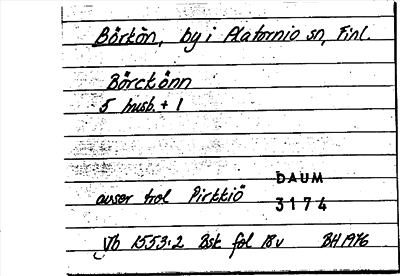 Börkön, by i Platornio sn, Finl.
Börckönn
5 husb. + 1
DAUM
avser trol Pirkkiö
3174
Vb 1553:2 Bsk fol 18v BH 1976